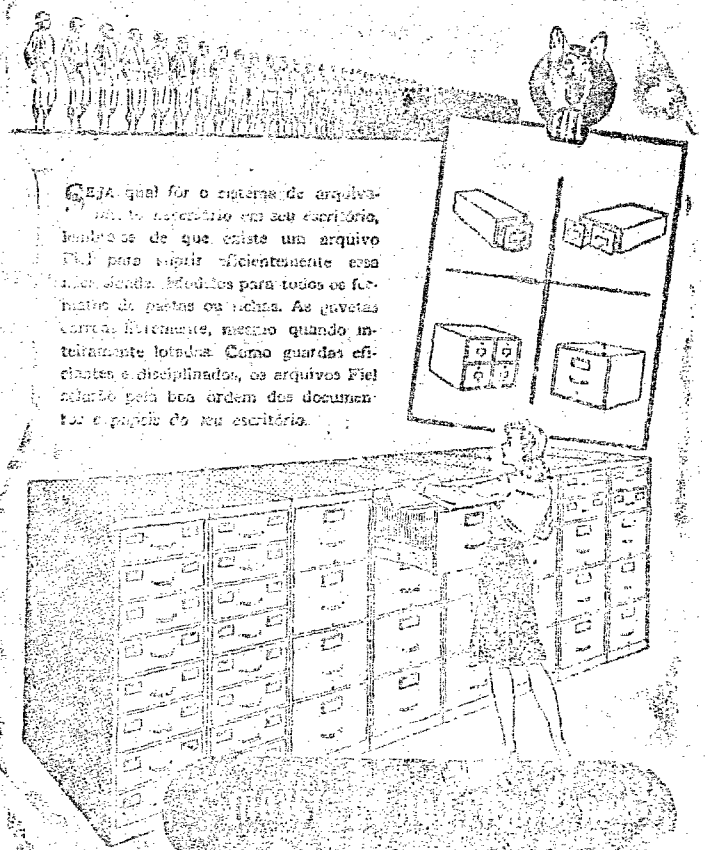 SEJA qual fôr o sistema de arquiva-
mento necessário em seu escritório,
lembre-se de que existe um arquivo
Fiel para suprir eficientemente essa
necessidade. Modelos para todos os for-
matos de pastas ou fichas. As gavetas
correm livremente, mesmo quando in-
teiramente lotadas. Como guardas efi-
cientes e disciplinados, os arquivos Fiel
zelarão pela boa ordem dos documen-
tos e papeis do seu escritório.